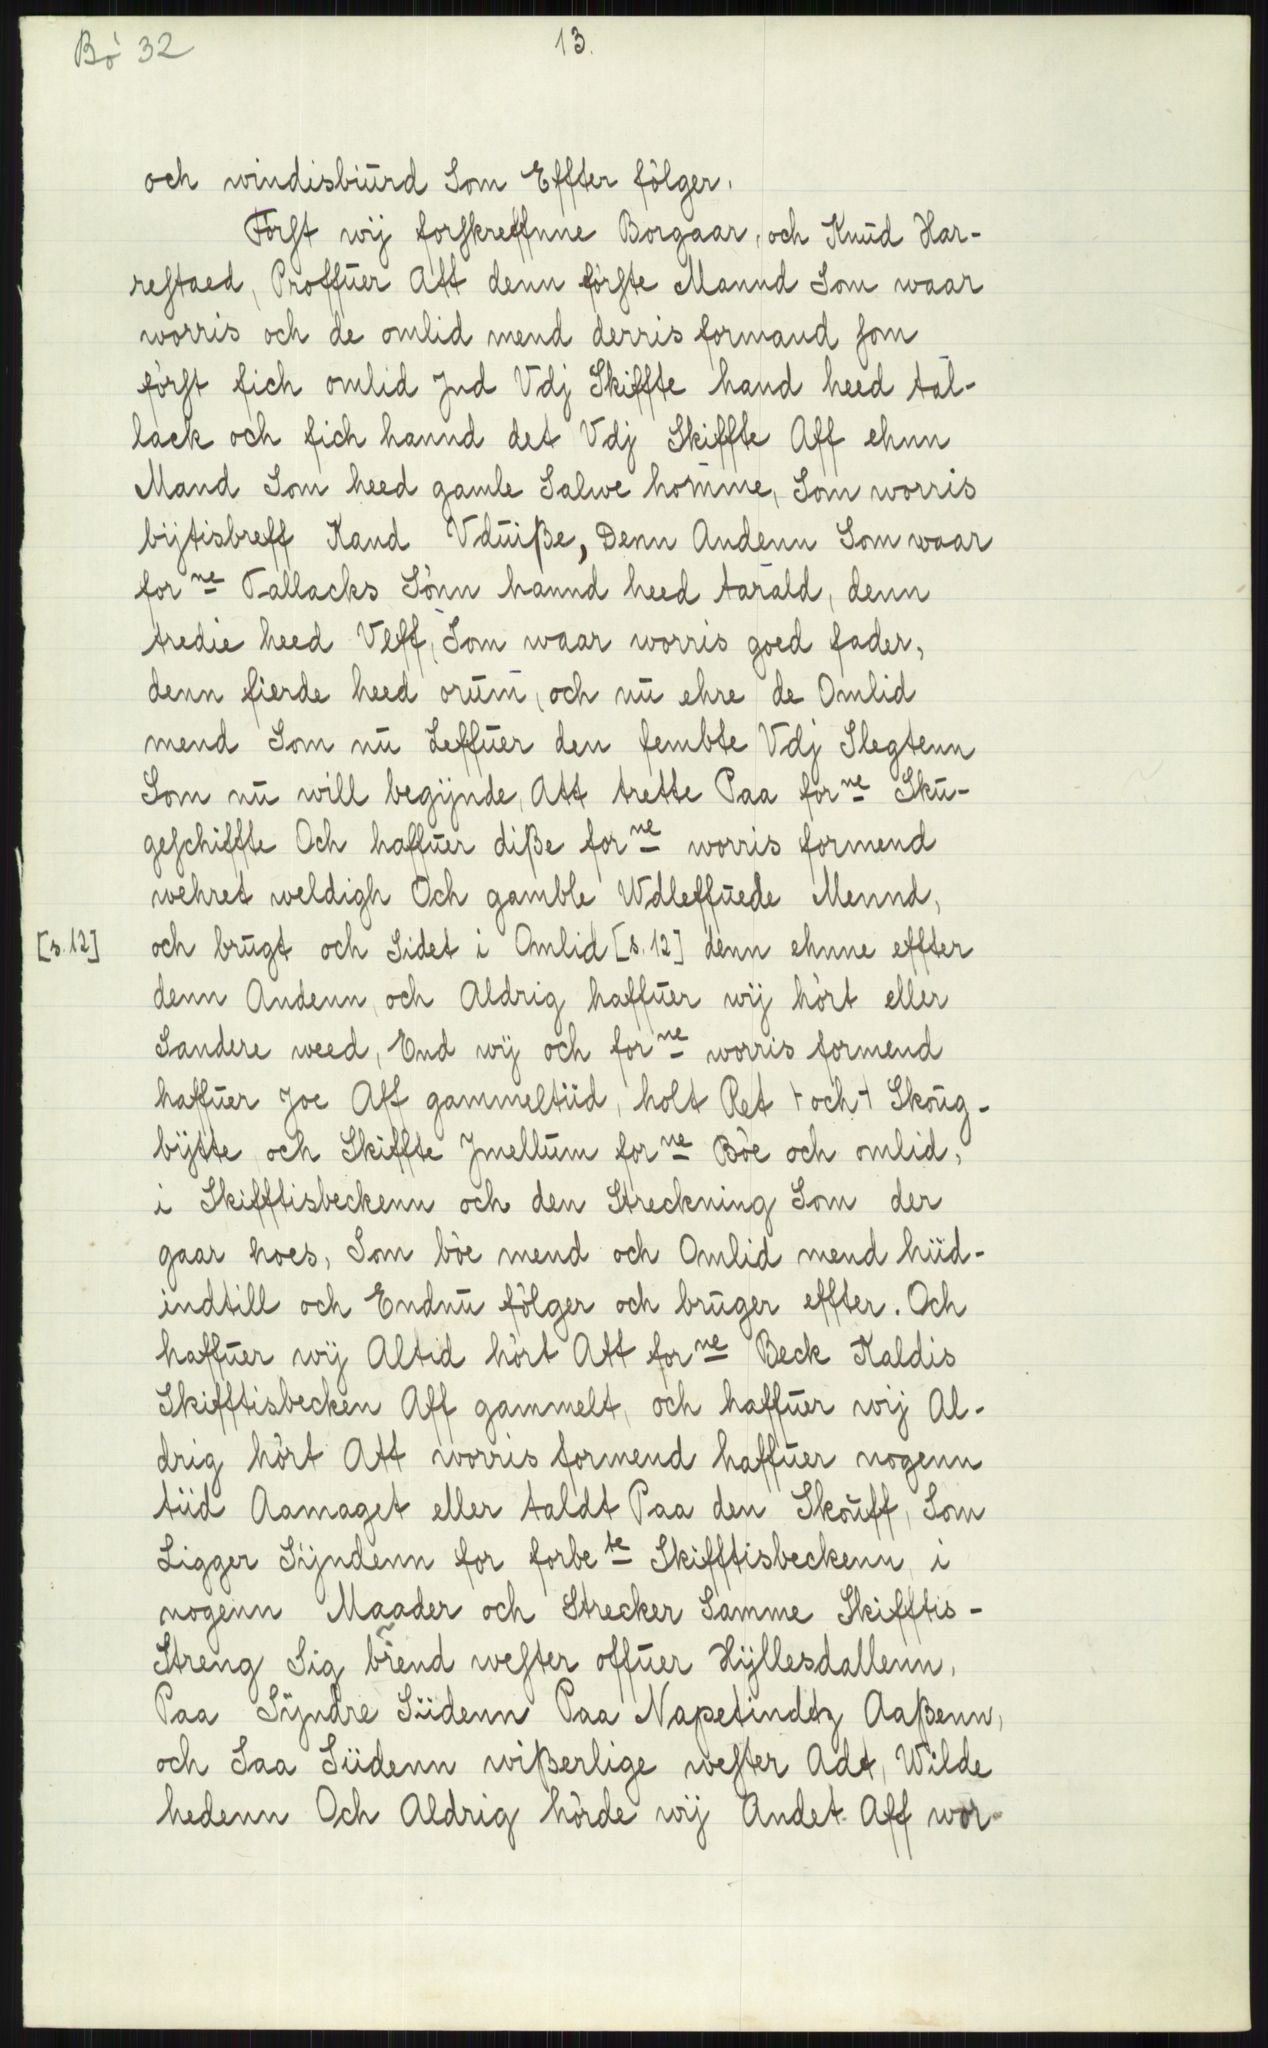 Bò 32
13.
och windisbiurd Som Effter fòlger.
Fòrst wij forskreffnne Borgaar, och Knud Har-
restaed, Proffuer Att denn fòrste Mannd Som waar
worris och de omlid mend derris formand som
fòrst fich omlid Jnd Vdj Skiffte hand heed tal-
lack och fich hannd det Vdj Skiffte Aff ehnn
Mand Som heed gamle Salwe homme, Som worris
bijtisbreff Kand Vduiße, Denn Andenn Som waar
forne Tallacks Sònn hannd heed tarald, denn
tredie heed Vlff, Som waar worris goed fader,
denn fierde heed orum, och nu ehre de Omlid
mend Som nu Leffuer den fembte Vdj Slegtenn
Som nu will begÿnde, Att trette Paa forne Sku-
geschiffte Och haffuer diße forne worris formend
wehret weldigh Och gamble Wdleffuede Mennd,
[s.12] och brugt och Sidet i Omlid [s.12] denn ehnne effter
denn Andenn, och Aldrig haffuer wij hòrt eller
Sandere weed, End wij och forne worris formend
haffuer Joe Aff gammeltiid, holt Ret + och + Skoug-
bÿtte och Skiffte Jmellum forne Bòe och omlid,
i Skifftisbeckenn och den Streckning Som der
gaar hoes, Som bòe mend och Omlid mend hiid-
indtill och Endnu fòlger och bruger effter. Och
haffuer wij Altid hòrt Att forne Beck Kaldis
Skifftisbecken Aff gammelt, och haffuer wij Al-
drig hòrt Att worris formend haffuer nogenn
tiid Aamaget eller taldt Paa den Skouff, Som
Ligger Sÿndenn for forbete Skifftisbeckenn, i
nogenn Maader och Strecker Samme Skifftis-
Streng Sig brend wester offuer Hÿllesdallenn,
Paa Sÿndre Siidenn Paa Napetindtz Aaßenn,
och Saa Siidenn wißerlige wester Adt, Wilde
hedenn Och Aldrig hòrde wij Andet Aff wor-